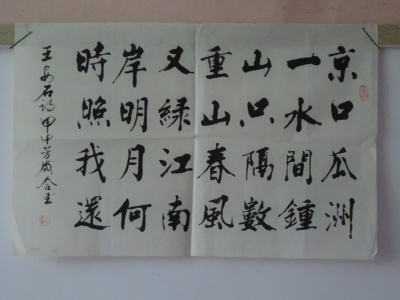 京口瓜洲
一水間鍾
山只隔數
重山春風
又綠江南
岸明月何
時照我還
王安石詩甲申